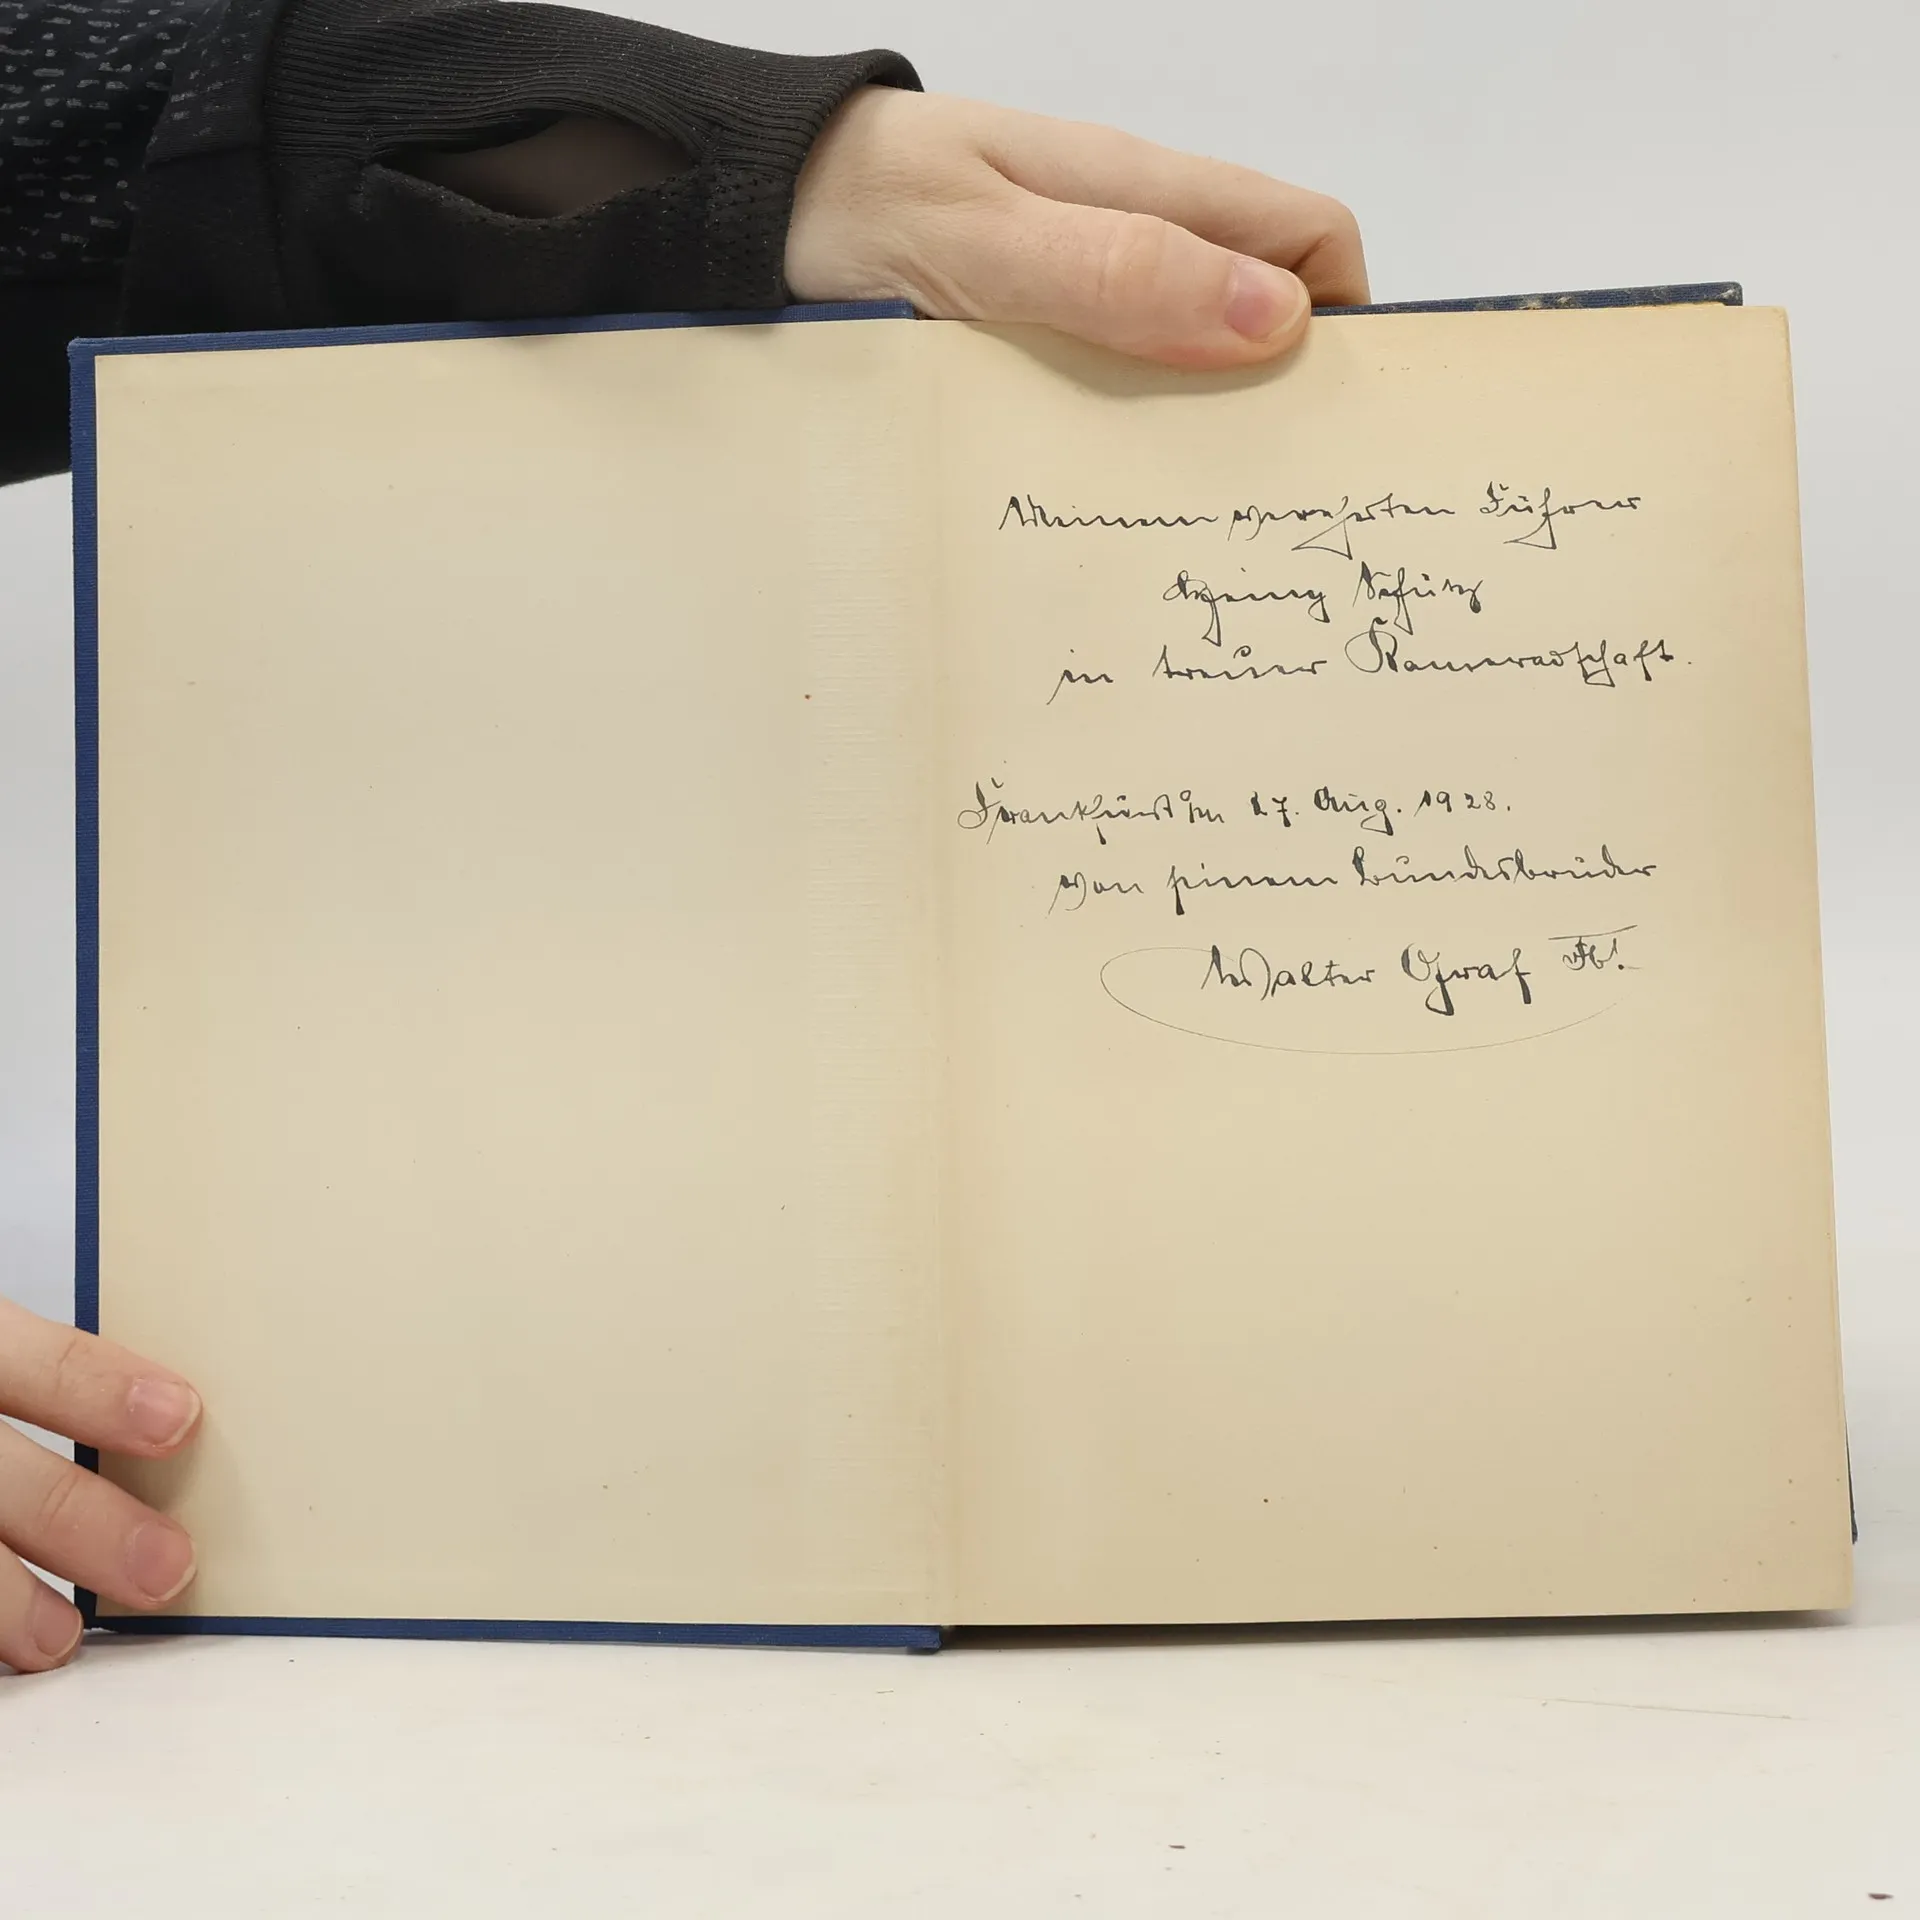 Meinem verehrten Führer
Heinz Schütz
in treuer Kameradschaft.
Frankfurt a/m 27. Aug. 1928.
von seinem Bundesbruder
Walter Graf